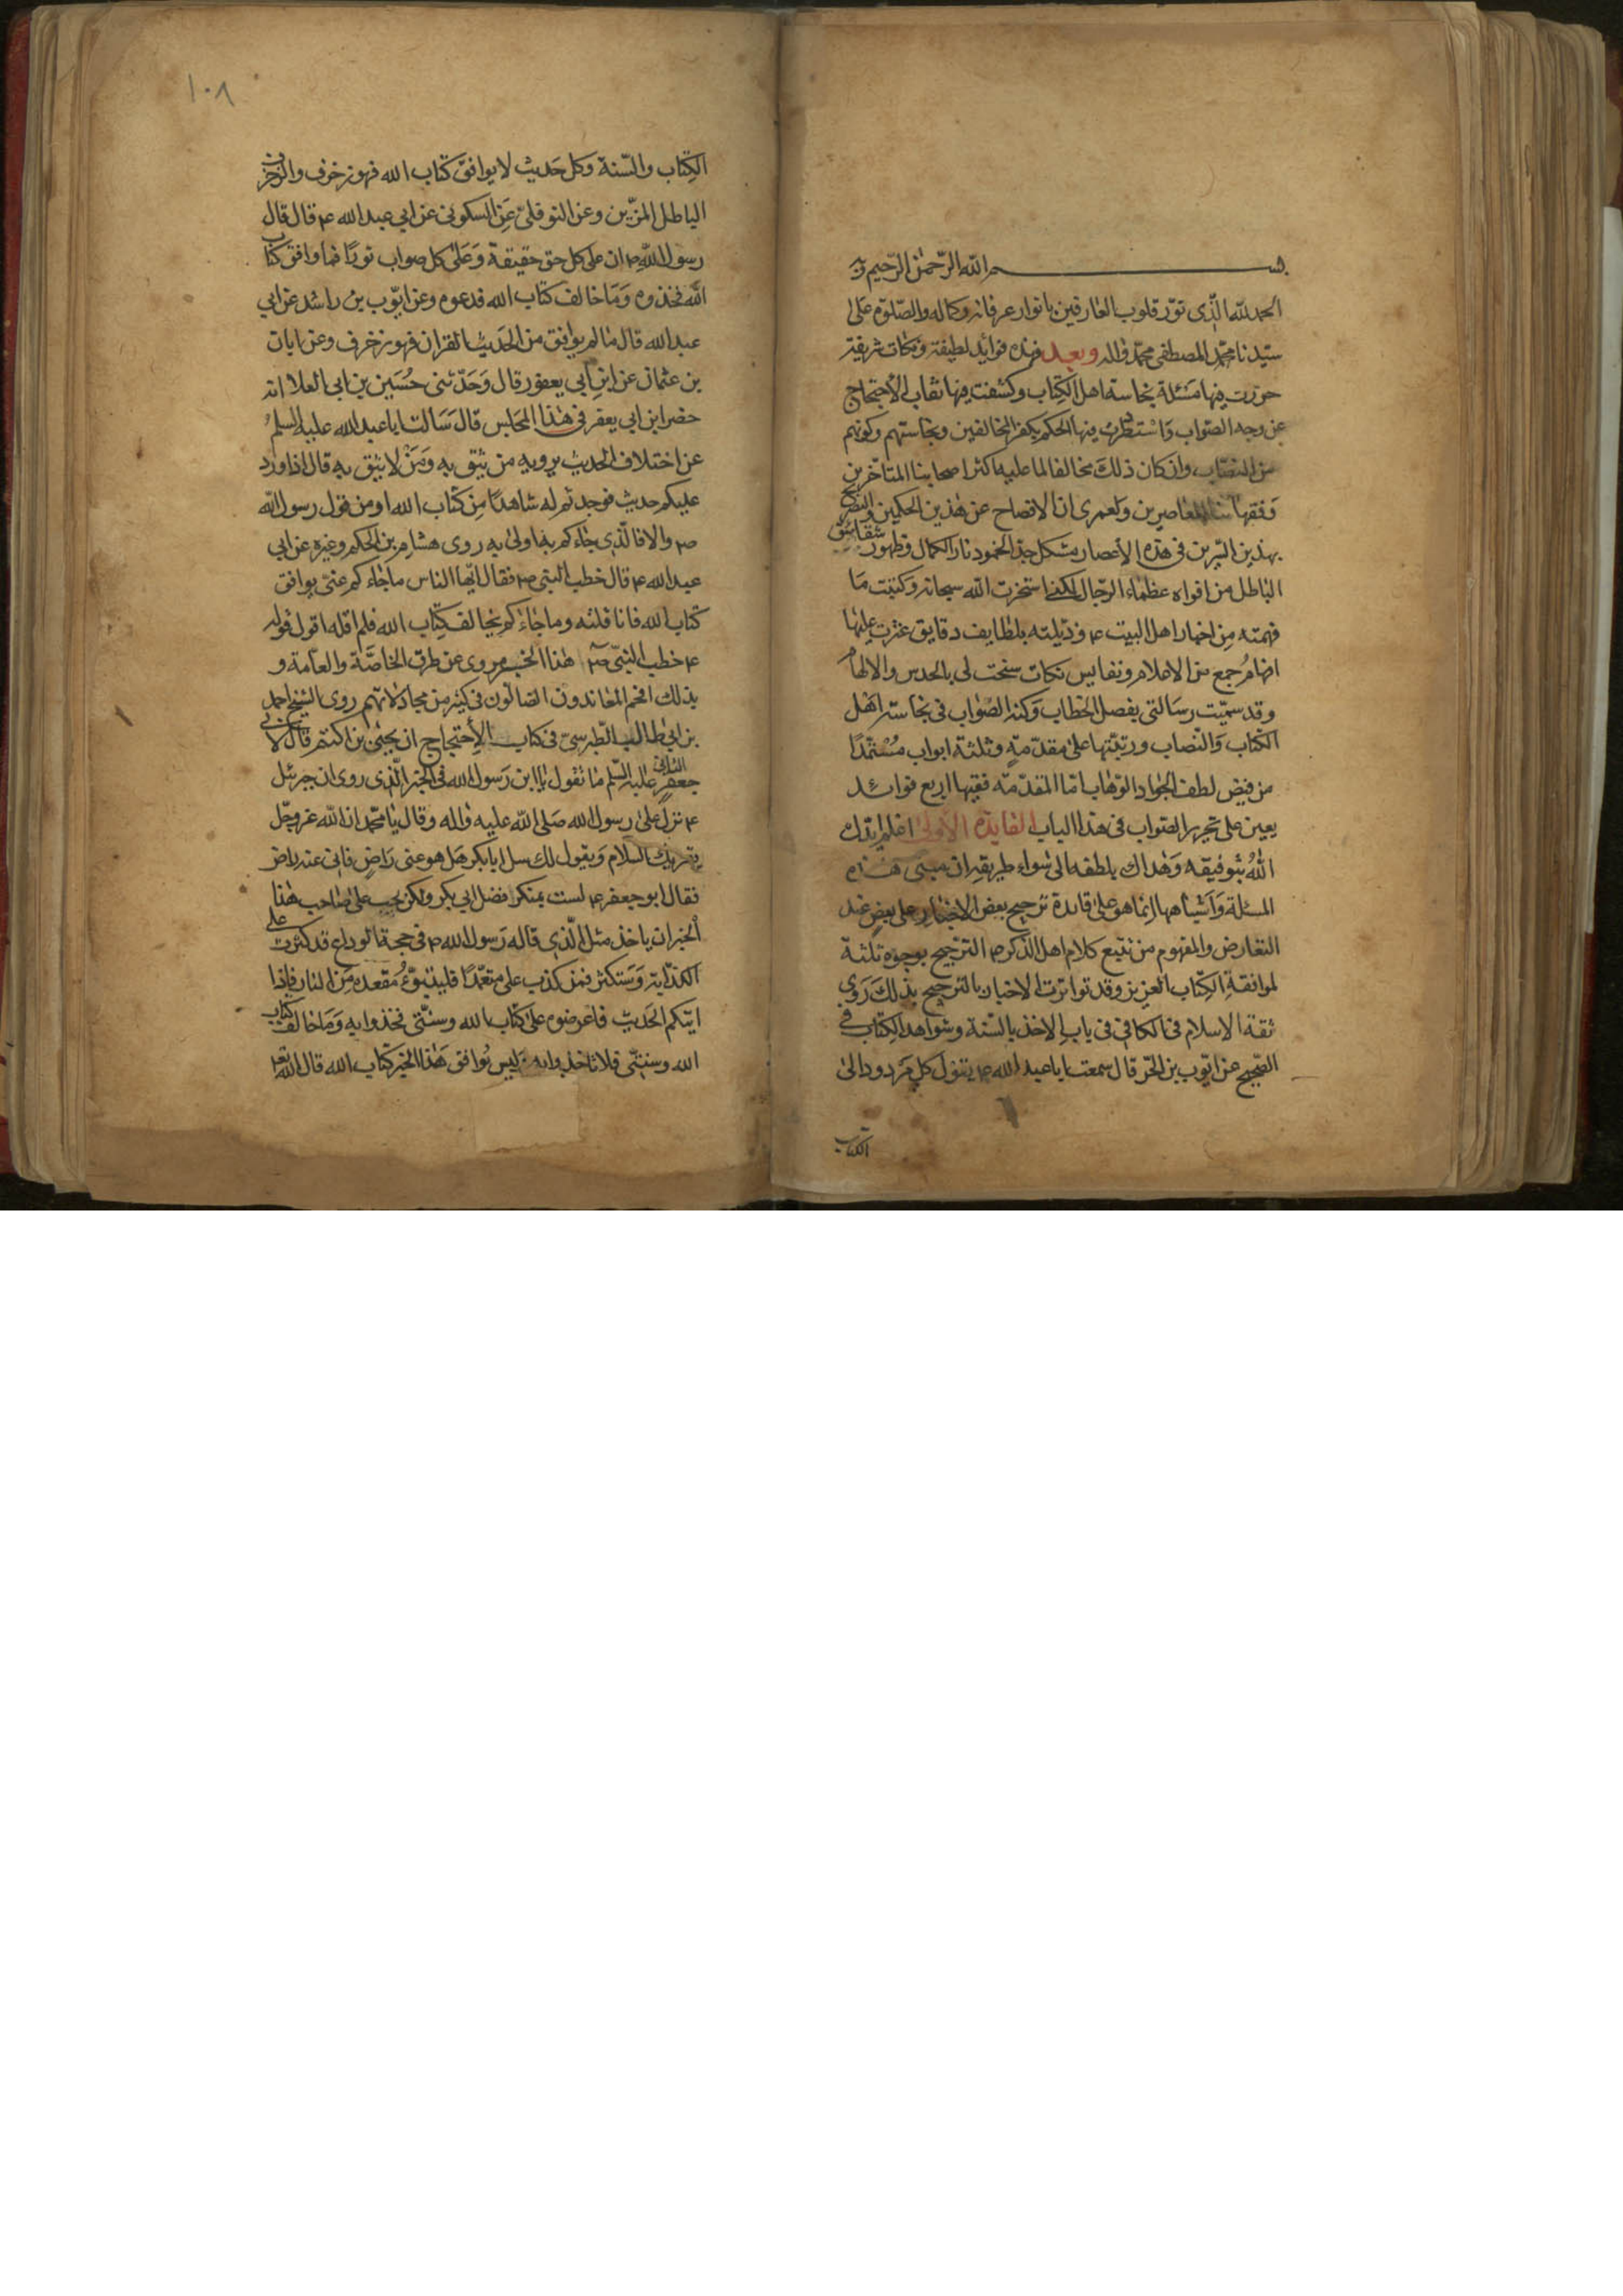 بسم الله الرحمن الرحيم وبه
الحمد لله الذى نور قلوب العارفين بانوار عرفانه وكماله والصلوة على
سيدنا محمد المصطفى محمد واله وبعد فهذه فوائد لطيفة ونكات شريفة
حررت فيها مسئلة نجاسة اهل الكتاب وكشفت فيها نقاب الاحتجاج
عن وجه الصواب واستطردت فيها الحكم بكفر المخالفين ونجاستهم وكونهم
من النصاب وان كان ذلك مخالفا لما عليه اكثر اصحابنا المتاخرين
وفقهائنا المعاصرين ولعمرى ان الافصاح عن هذين الحكمين والتصريح
بهذين السرين فى هذه الاعصار مشكل جدا لخمود نار الكمال وظهور شقاشق
الباطل من افواه عظماء الرجال لكننى استخرت الله سبحانه وكتبت ما
فهمته من اخبار اهل البيت ع وذيلته بلطايف دقايق عثرت عليها
افهام جمع من الاعلام ونفايس نكات سنحت لى بالحدس والالهام
وقد سميت رسالتى بفصل الخطاب وكنه الصواب فى نجاسة اهل
الكتاب والنصاب ورتبتها على مقدمة وثلثة ابواب مستمدا
من فيض لطف الجواد الوهاب اما المقدمة ففيها اربع فوائد
يعين على تحرير الصواب فى هذا الباب الفايدة الاولى اعلم ايدك
الله بتوفيقه وهداك بلطفه الى سواء طريقه ان مبنى هذه
المسئلة واشباهها انما هو على قاعدة ترجيح بعض الاخبار على بعض عند
التعارض والمفهوم من تتبع كلام اهل الذكر ع الترجيح بوجوه ثلثة
لموافقة الكتاب العزيز وقد تواترت الاخبار بالترجيح بذلك روى
ثقة الاسلام فى الكافى فى باب الاخذ بالسنة وشواهد الكتاب فى
الصحيح عن ايوب بن الحر قال سمعت ابا عبد الله ع يقول كل مردود الى
الكتاب
١٠٨
الكتاب والسنة وكل حديث لا يوافق كتاب الله فهو زخرف والزخرف
الباطل المزين وعن النوفلى عن السكونى عن ابى عبد الله ع قال قال
رسول الله ص ان على كل حق حقيقة وعلى كل صواب نورا فما وافق كتاب
الله فخذوه وما خالف كتاب الله فدعوه وعن ايوب بن راشد عن ابى
عبد الله قال ما لم يوافق من الحديث القران فهو زخرف وعن ابان
بن عثمان عن ابن ابى يعفور قال وحدثنى حسين بن ابى العلا انه
حضر ابن ابى يعفر فى هذا المجلس قال سالت ابا عبد الله عليه السلم
عن اختلاف الحديث يرويه من يثق به ومن لا يثق به قال اذا ورد
عليكم حديث فوجدتم له شاهدا من كتاب الله او من قول رسول الله
ص والا فالذى جاءكم به اولى به روى هشام بن الحكم وغيره عن ابى
عبد الله ع قال خطب النبى ص فقال ايها الناس ما جاءكم عنى يوافق
كتاب الله فانا قلته وما جاءكم يخالف كتاب الله فلم اقله اقول قوله
ع خطب النبى ص هذا الخبر مروى عن طرق الخاصة والعامة و
بذلك افحم المعاندون الضالون فى كثير من مجادلاتهم روى الشيخ احمد
بن ابى طالب الطبرسى فى كتاب الاحتجاج ان يحيى بن اكثم قال لابى
جعفر الثانى عليه السلم ما تقول يا ابن رسول الله فى الخبر الذى روى ان جبرئيل
ع نزل على رسول الله صلى الله عليه واله وقال يا محمد ان الله عز وجل
يقرئك السلام ويقول لك سل ابا بكر هل هو عنى راض فانى عنه راض
فقال ابو جعفر ع لست بمنكر فضل ابى بكر ولكن يجب على صاحب هذا
الخبر ان ياخذ مثل الذى قاله رسول الله ص فى حجة الوداع قد كثرت على
الكذابة وستكثر فمن كذب على متعمدا فليتبوء مقعده من النار فاذا
اتيكم الحديث فاعرضوه على كتاب الله وسنتى فخذوا به وما خالف كتاب
الله وسنتى فلا تاخذوا به وليس يوافق هذا الخبر كتاب الله قال الله تعالى